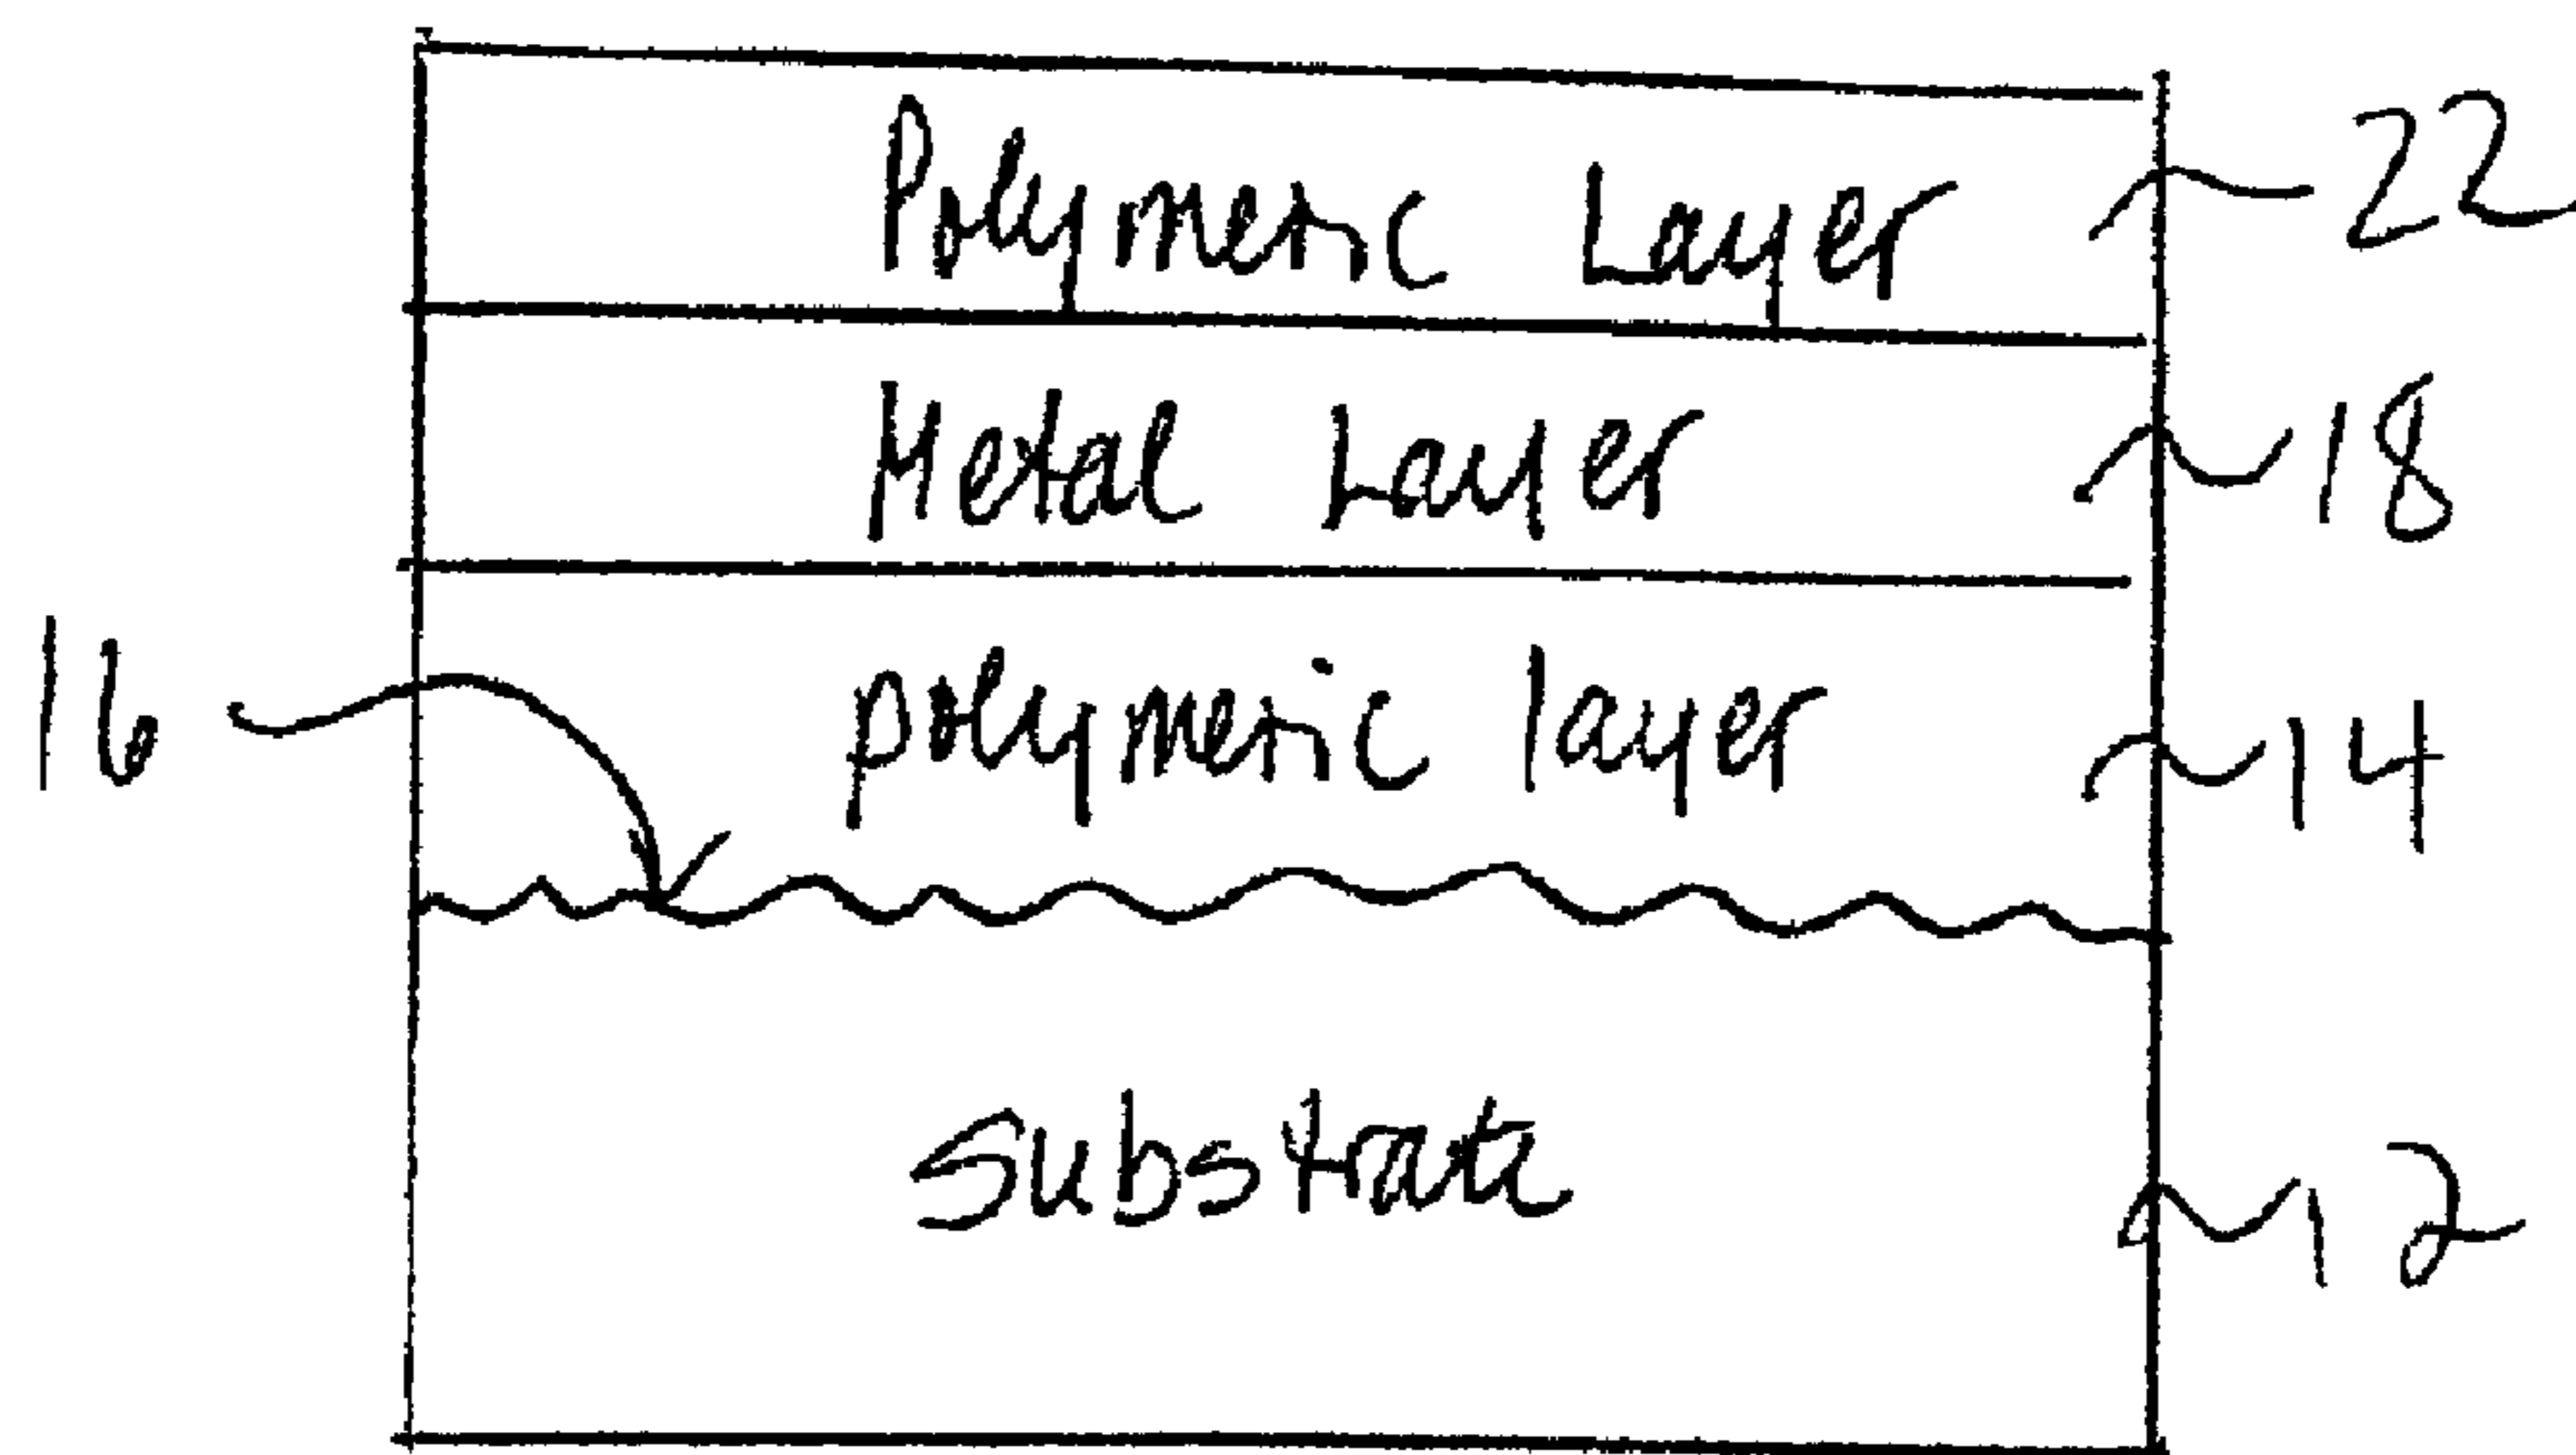 Polymeric Layer 22
Metal Layer 18
16 polymeric layer 14
Substrate 12